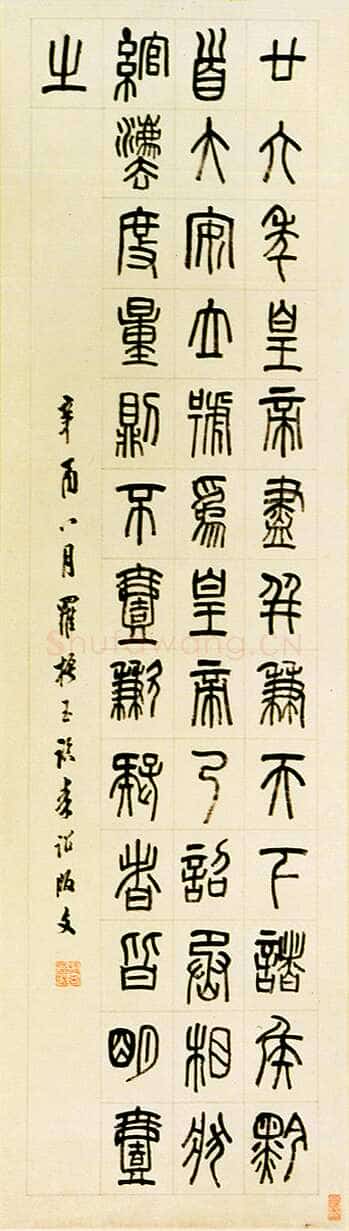 廿六年皇帝盡并兼天下諸侯黔
首大安立號為皇帝乃詔丞相狀
綰灋度量則不壹歉疑者皆明壹
之
辛酉八月羅振玉臨秦詔版文
Shufawang.CN